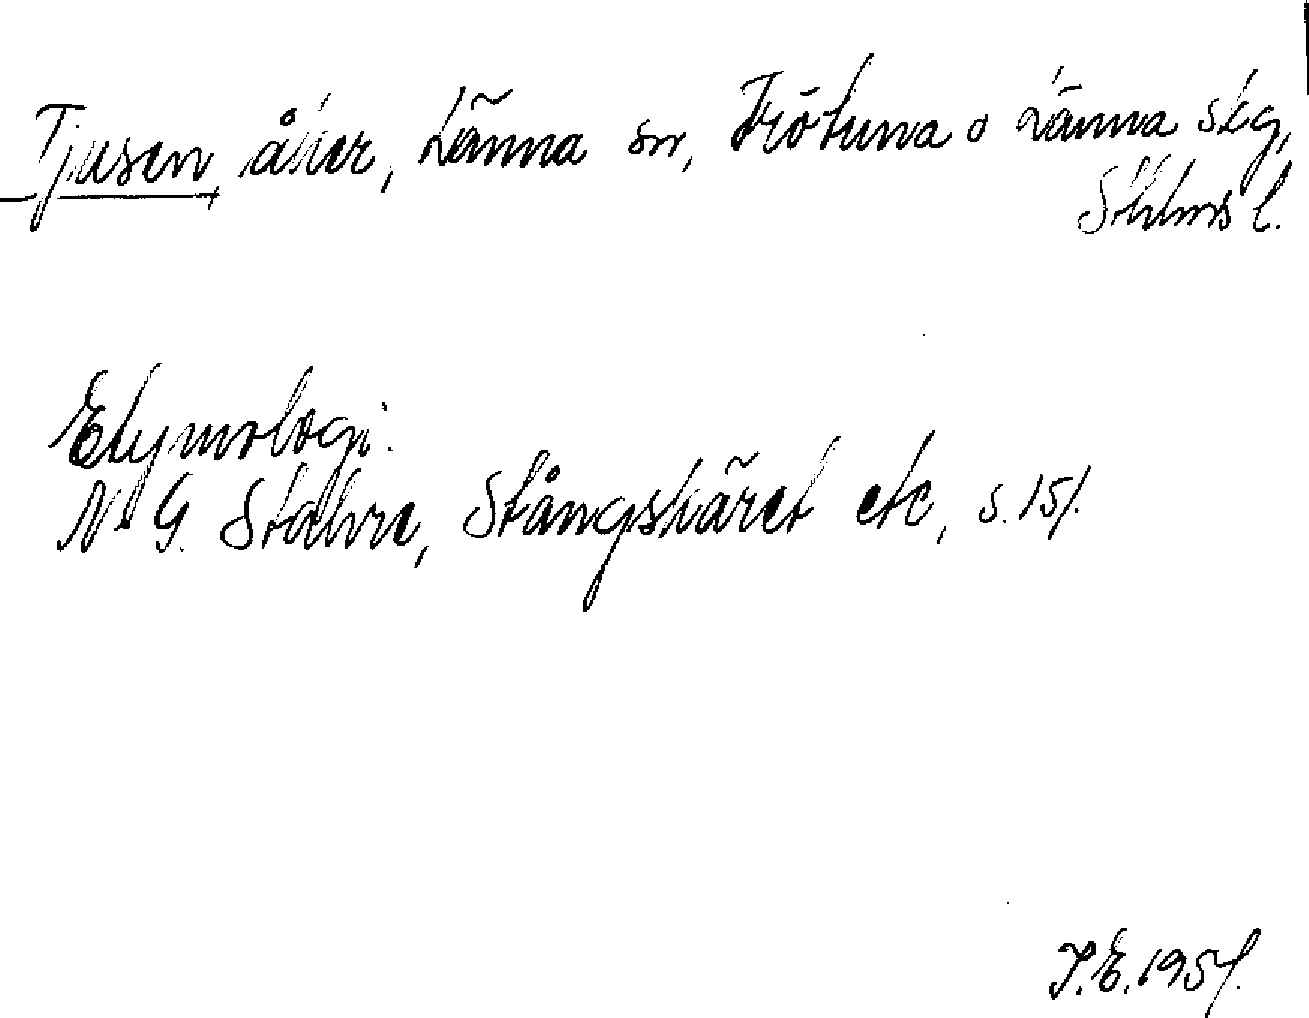 Tjusen, åker, Länna sn, Frötuna o Länna skg,
Sthlms l.
Etymologi:
N-G. Stahre, Stångskäret etc, s. 151.
I.E. 1957.